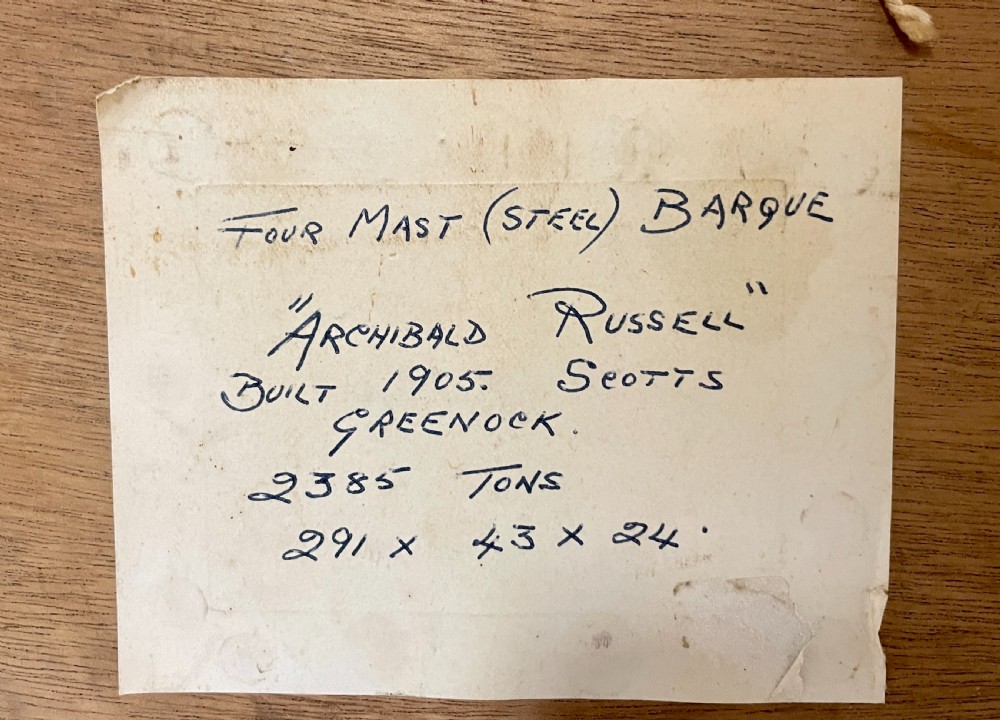 FOUR MAST (STEEL) BARQUE
"ARCHIBALD RUSSELL"
BUILT 1905. SCOTTS
GREENOCK.
2385 TONS
291 x 43 x 24.